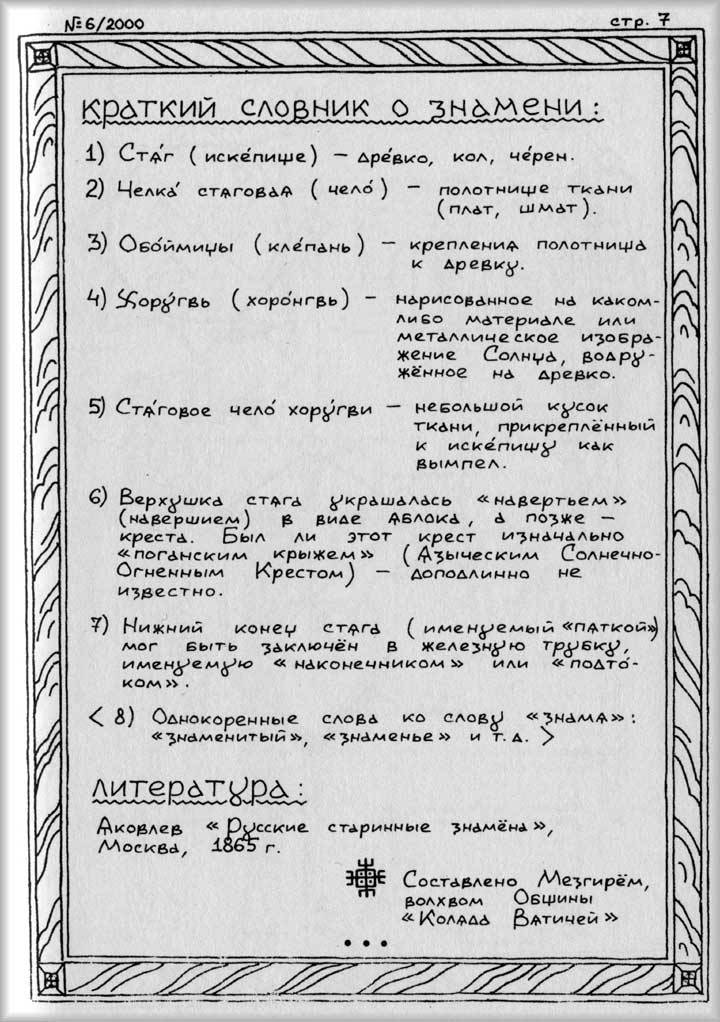 №6/2000 стр. 7
КРАТКИЙ СЛОВНИК О ЗНАМЕНИ:
1) Стя́г (иске́пище) – дре́вко, кол, че́рен.
2) Челка́ стяговая (чело́) – полотнище ткани
(плат, шмат).
3) Обо́ймицы (кле́пань) – крепления полотнища
к древку.
4) Хору́гвь (хоро́нгвь) – нарисованное на каком-
либо материале или
металлическое изобра-
жение Солнца, водру-
жённое на древко.
5) Стя́говое чело́ хору́гви – небольшой кусок
ткани, прикреплённый
к иске́пищу как
вымпел.
6) Верхушка стяга украшалась «навертьем»
(навершием) в виде яблока, а позже –
креста. Был ли этот крест изначально
«поганским крыжем» (Языческим Солнечно-
Огненным Крестом) – доподлинно не
известно.
7) Нижний конец стяга (именуемый «пяткой»)
мог быть заключён в железную трубку,
именуемую «наконечником» или «подто́-
ком».
< 8) Однокоренные слова ко слову «знамя»:
«знаменитый», «знаменье» и т.д. >
ЛИТЕРАТУРА:
Яковлев «Русские старинные знамёна»,
Москва, 1865 г.
Составлено Мезгирём,
волхвом Общины
«Коляда Вятичей»
• • •